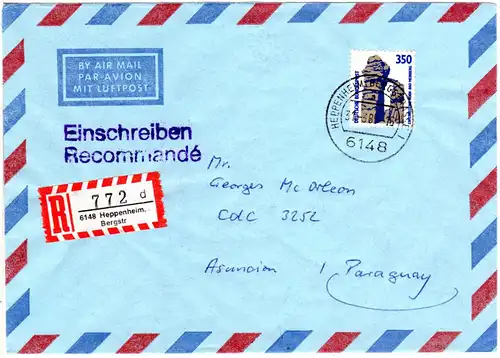 BY AIR MAIL
PAR AVION
MIT LUFTPOST
350
HEPPENHEIM
6148
Einschreiben
Recommandé
R 772 d
6148 Heppenheim,
Bergstr
Mr.
Georges Mc Orleon
CdC 3252
Asuncion / Paraguay